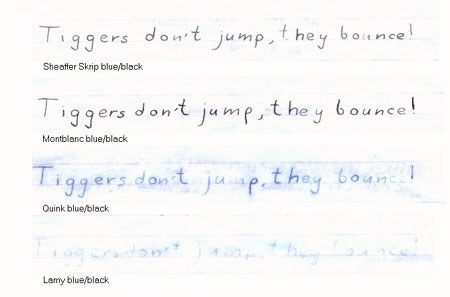 Tiggers don't jump, they bounce!
Sheaffer Skrip blue/black
Tiggers don't jump, they bounce!
Montblanc blue/black
Tiggers don't jump, they bounc !
Quink blue/black
Tiggers don't jump, they bounce!
Lamy blue/black